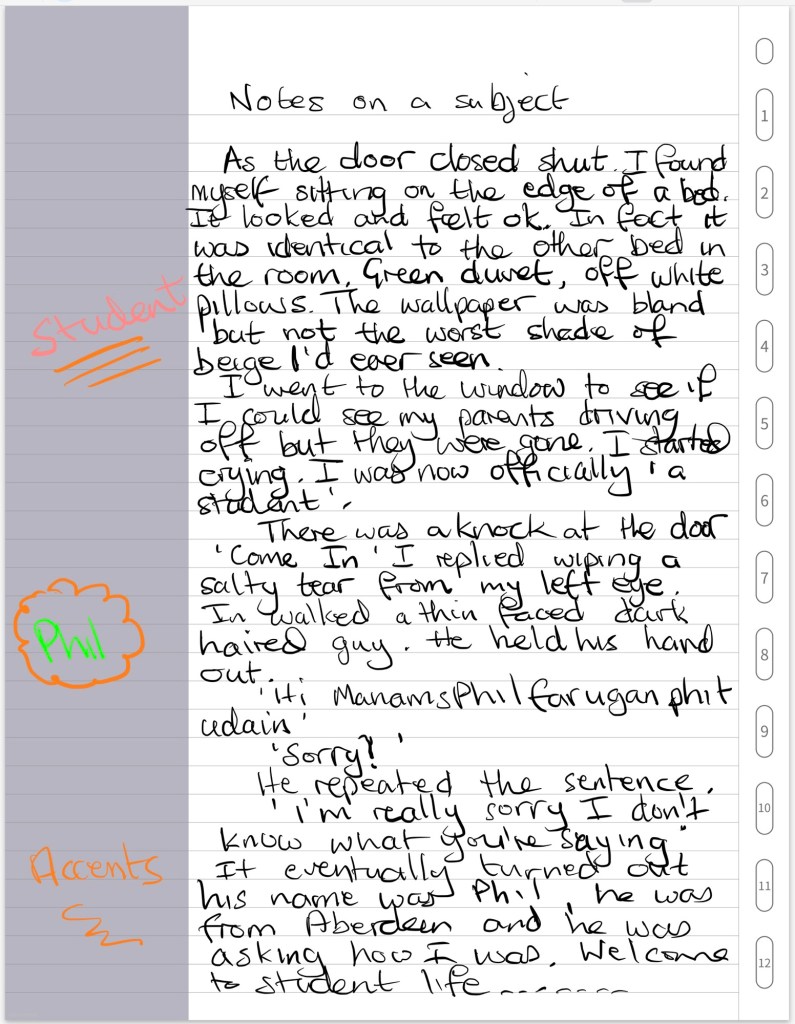 Notes on a subject
As the door closed shut. I found
myself sitting on the edge of a bed.
It looked and felt ok. In fact it
was identical to the other bed in
the room. Green duvet, off white
pillows. The wallpaper was bland
but not the worst shade of
beige I'd ever seen.
I went to the window to see if
I could see my parents driving
off but they were gone. I started
crying. I was now officially 'a
student'.
There was a knock at the door
'Come In' I replied wiping a
salty tear from my left eye.
In walked a thin faced dark
haired guy. He held his hand
out.
'Hi ManamsPhilfarugan phit
udain'
'Sorry?'
He repeated the sentence.
'i'm really sorry I don't
know what you're saying'
It eventually turned out
his name was Phil, he was
from Aberdeen and he was
asking how I was. Welcome
to student life........
Student
Phil
Accents
1
2
3
4
5
6
7
8
9
10
11
12